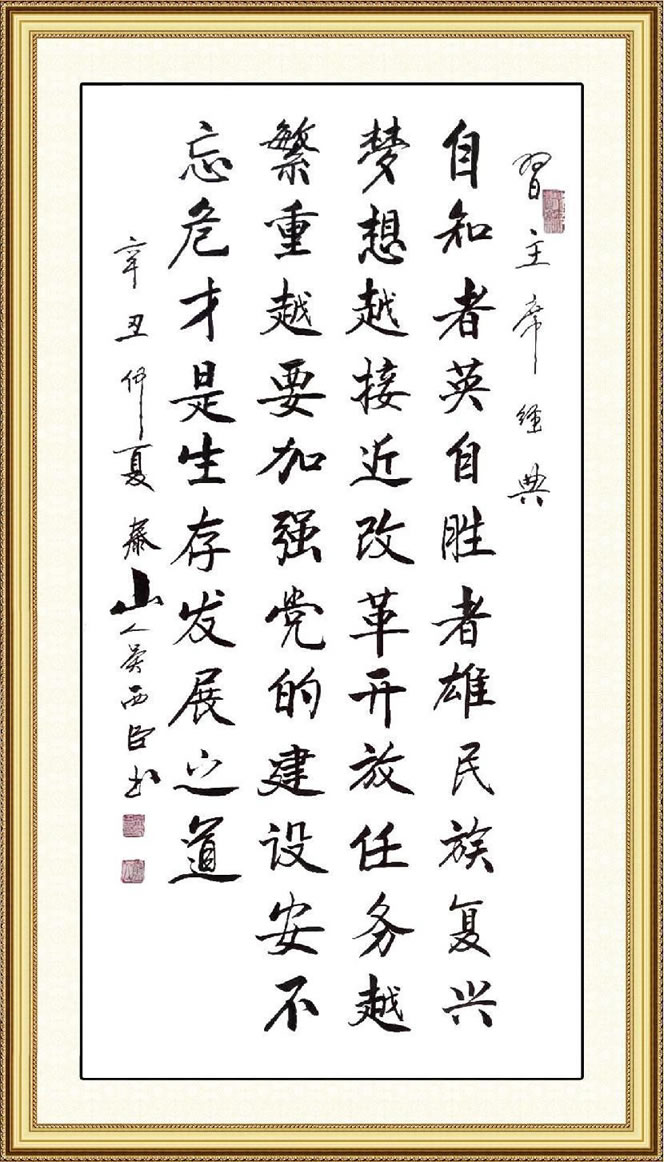 習主席經典
自知者英自胜者雄民族复兴
梦想越接近改革开放任务越
繁重越要加强党的建设安不
忘危才是生存发展之道
辛丑仲夏泰山人吴西臣书